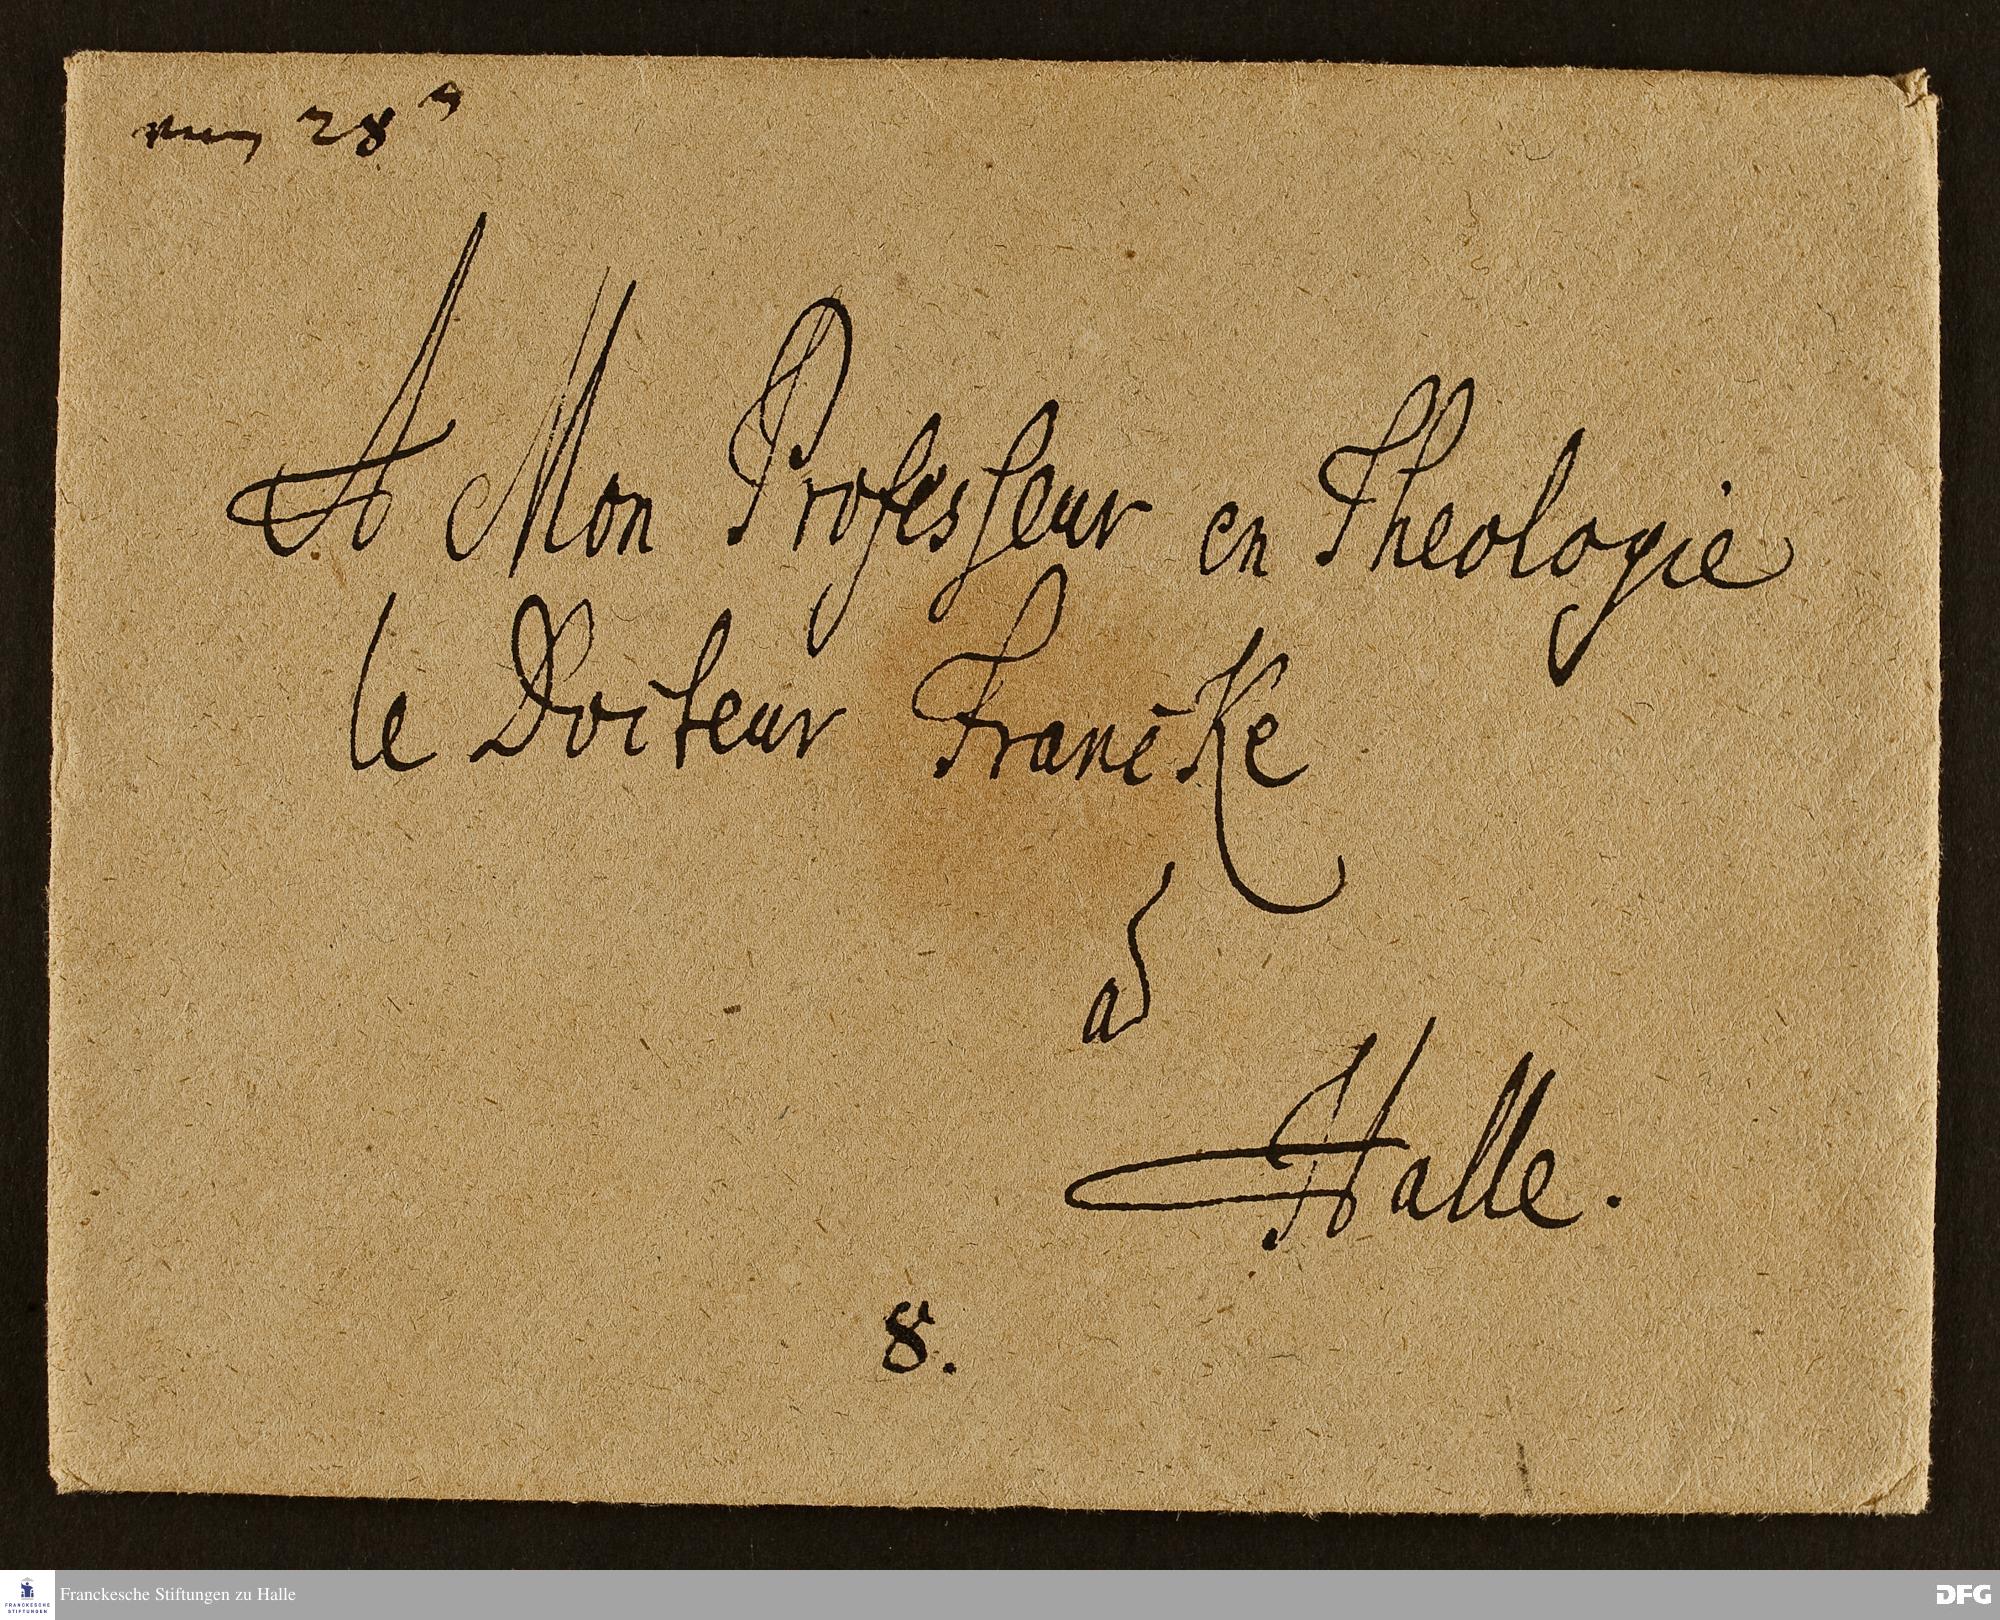 28
A Mon Professeur en Theologie
le Docteur Francke
a
Halle.
8.
FRANCKESCHE STIFTUNGEN
Franckesche Stiftungen zu Halle
DFG